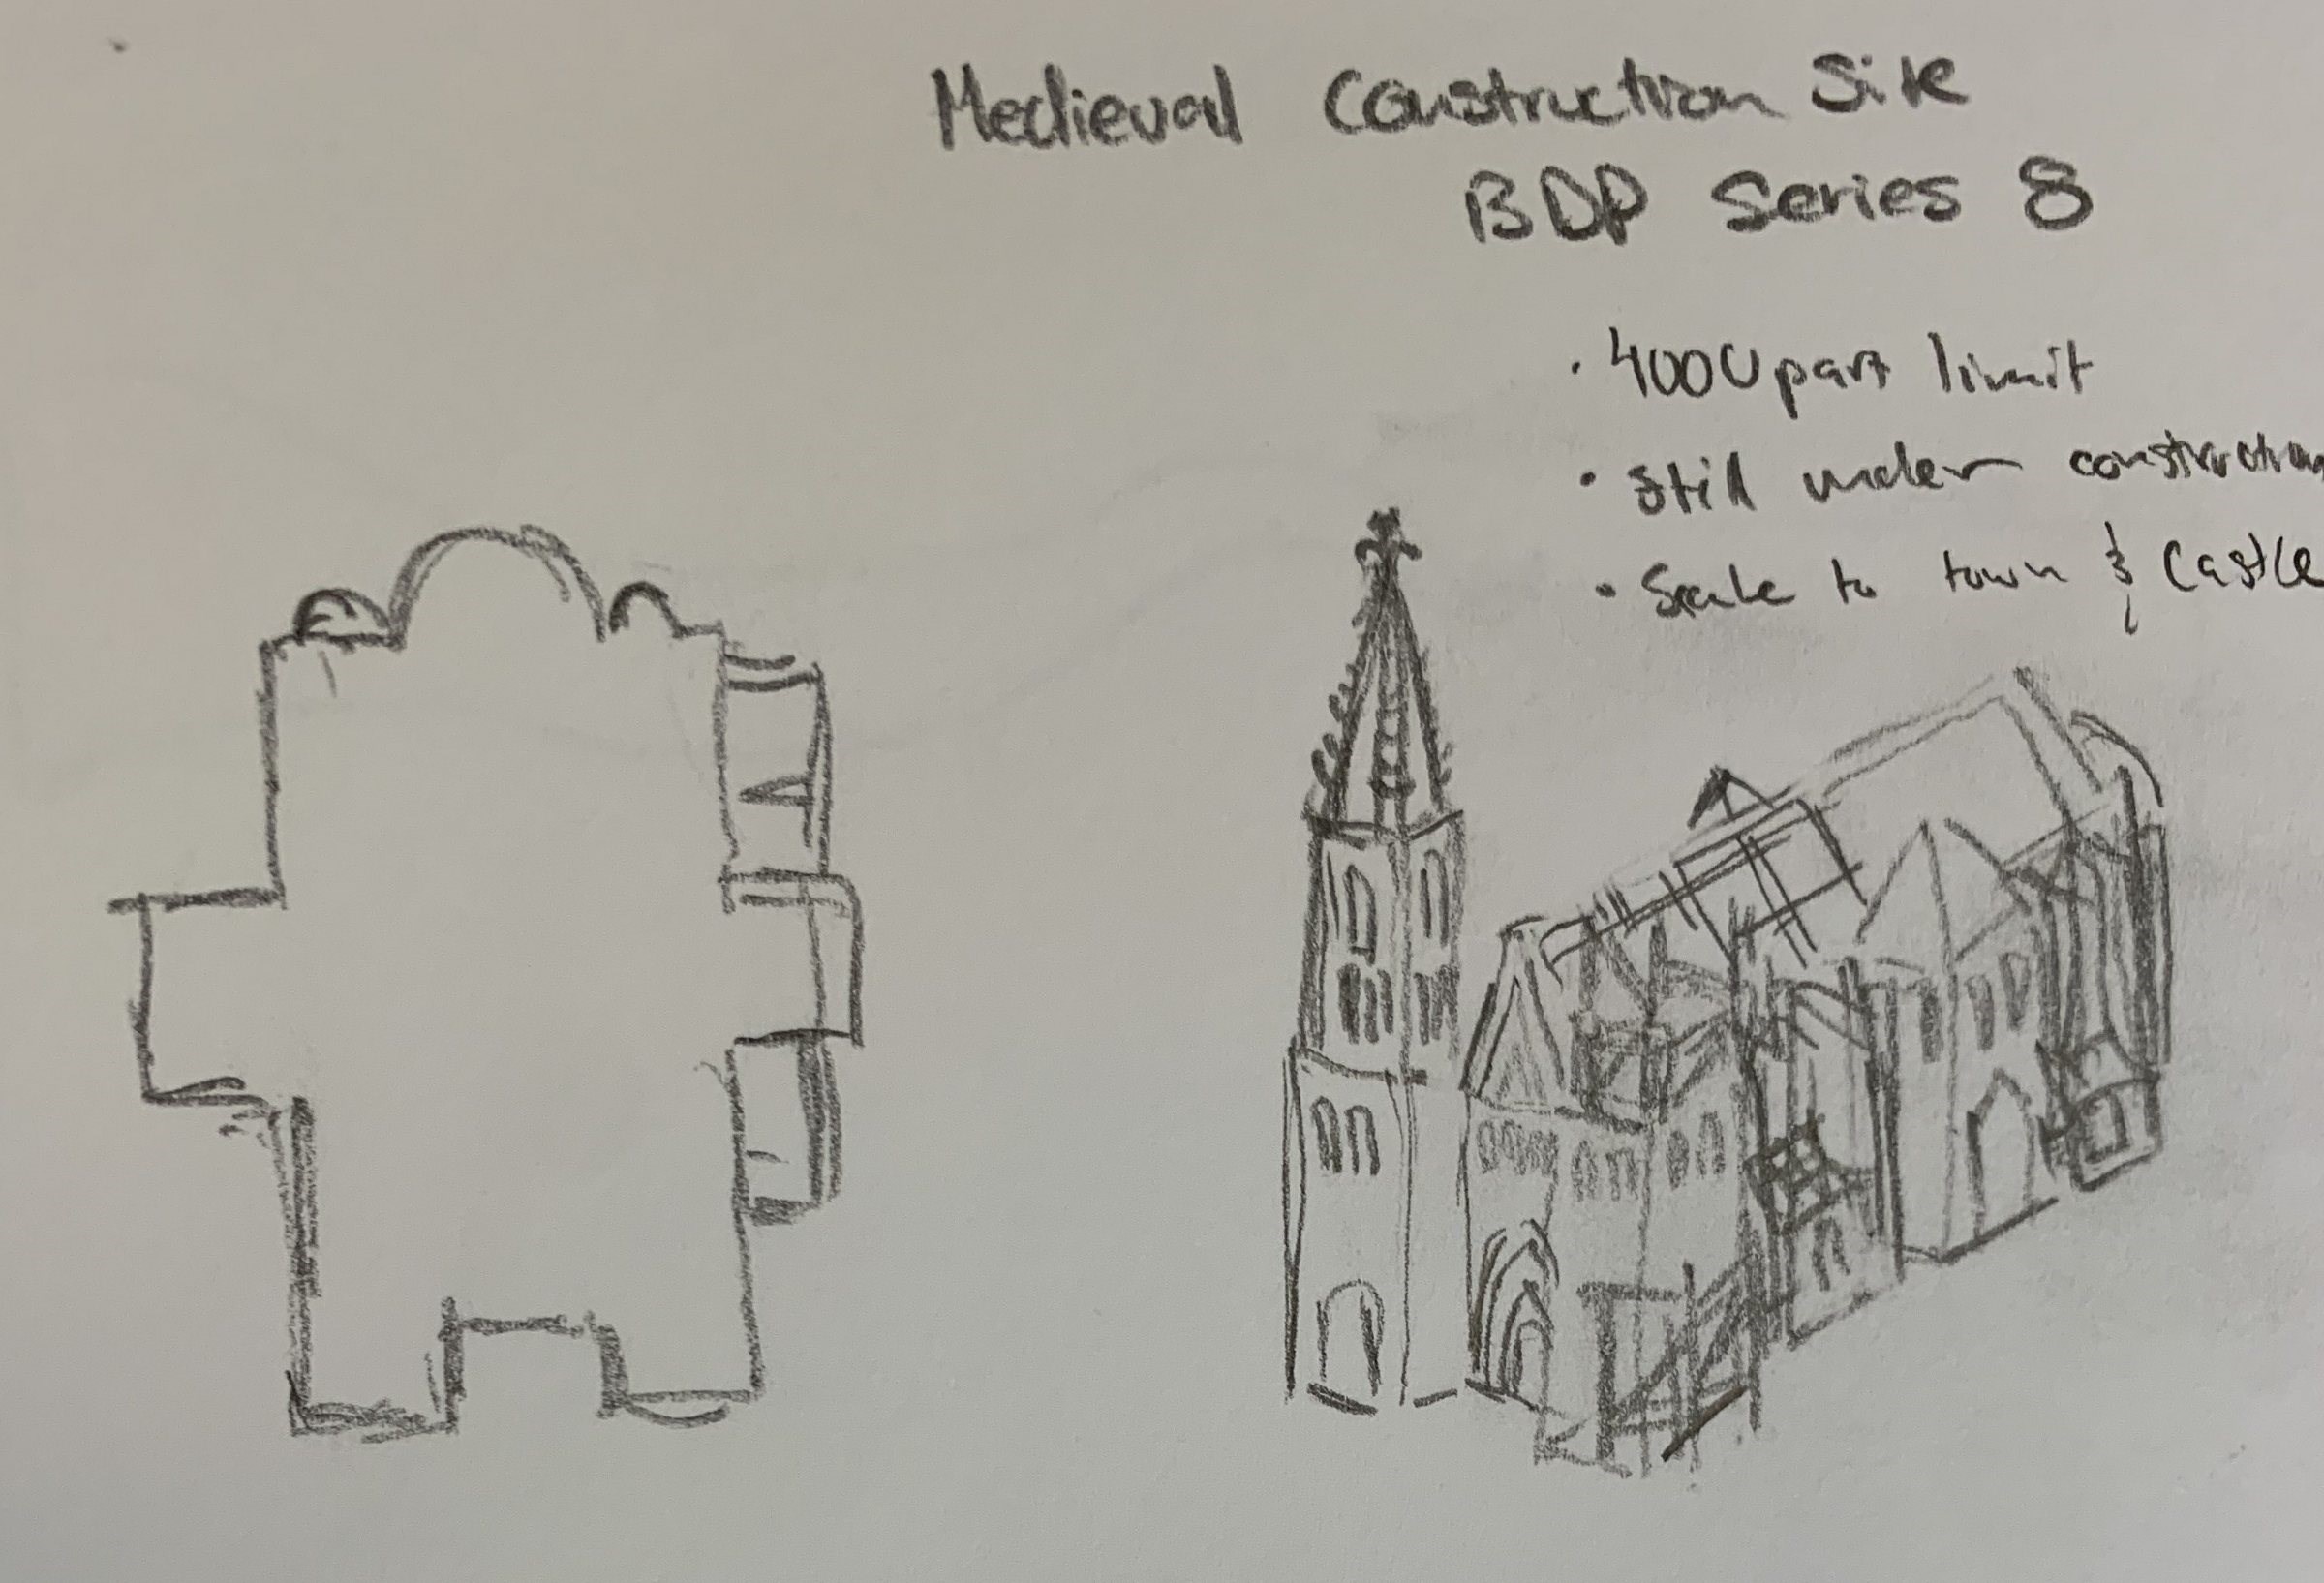 Medieval Construction Site
BDP Series 8
· 4000 part limit
· Still under construction
· Scale to town & Castle